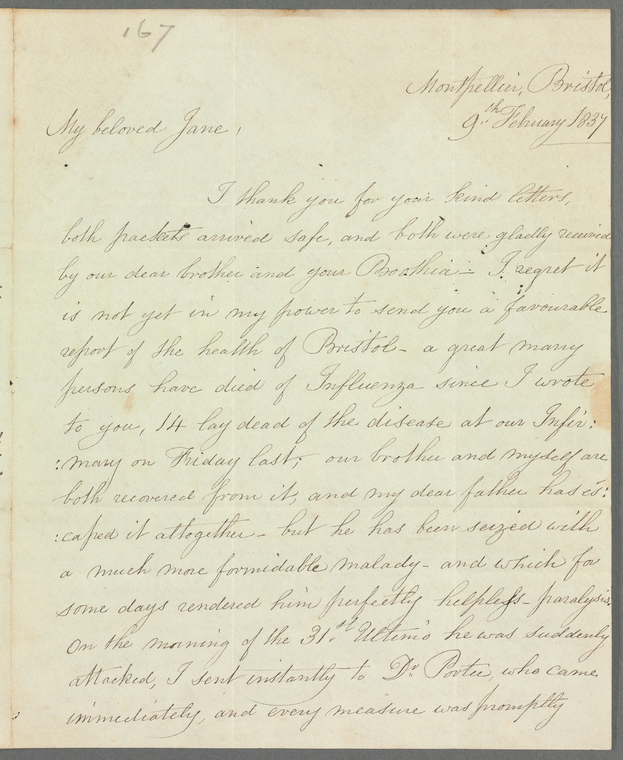 167
Montpellier, Bristol,
9.th February 1837
My beloved Jane,
I thank you for your kind letters,
both packets arrived safe, and both were gladly received
by our dear brother and your - I regret it
is not yet in my power to send you a favourable
report of the health of Bristol - a great many
persons have died of Influenza since I wrote
to you, 14 lay dead of the disease at our Infir:
:mary on Friday last; our brother and myself are
both recovered from it, and my dear father has es:
:caped it altogether - but he has been seized with
a much more formidable malady - and which for
some days rendered him perfectly helpless - paralysis.
On the morning of the 31.st Ultimo he was suddenly
attacked, I sent instantly to Dr. who came
immediately, and every measure was promptly